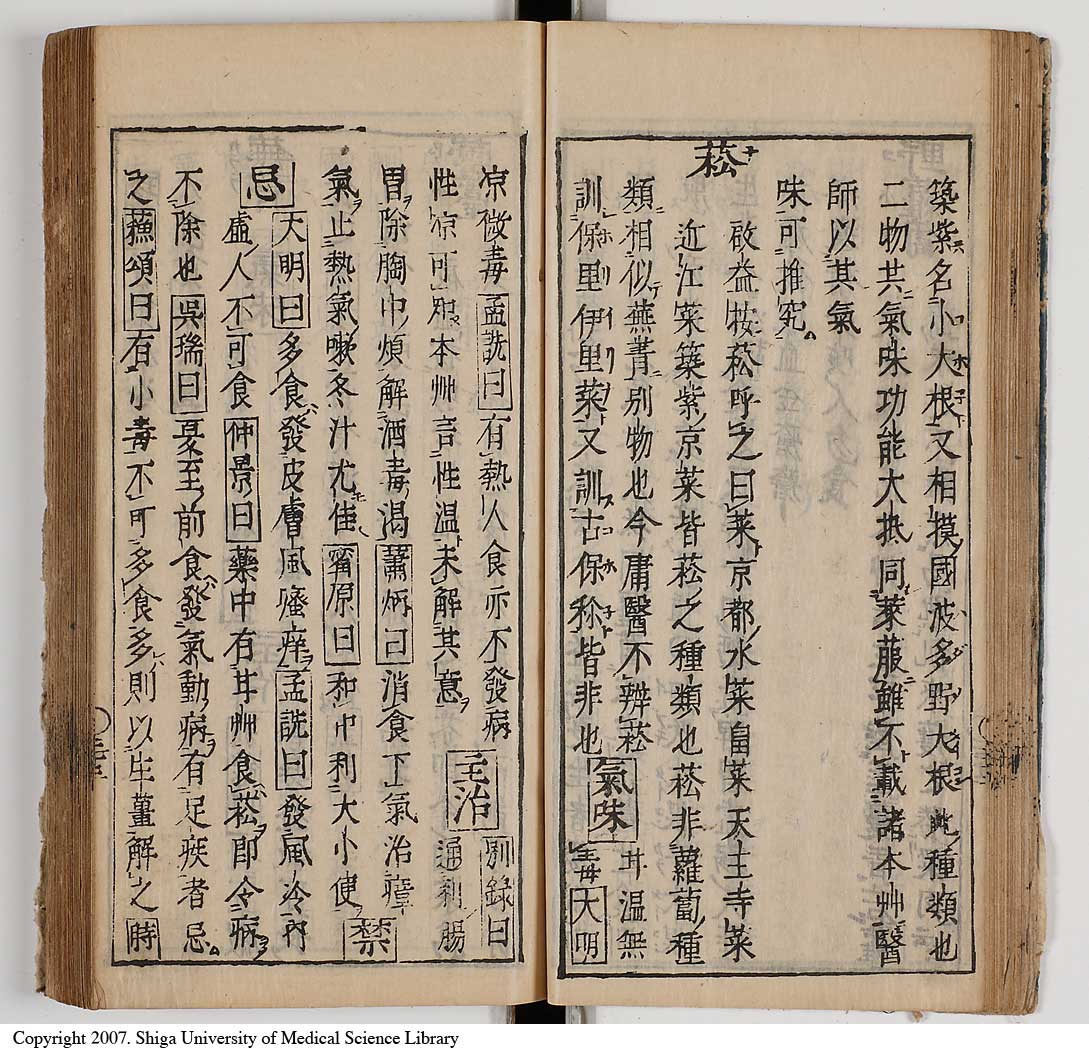 築紫名小大根又相摸國波多野大根此種類也
二物共氣味功能大抵同萊菔雖不載諸本艸醫
師以其氣
味可推究
菘
啟益按菘呼之曰菜京都水菜畠菜天王寺菜
近江菜築紫京菜皆菘之種類也菘非蘿蔔種
類相似蕪菁別物也今庸醫不辨菘
訓保里伊里菜又訓古保祢皆非也 氣味 甘温無毒 大明
凉微毒 孟詵曰 有熱人食亦不發病 主治 別錄曰
性凉可知本艸言性温未解其意 通利腸
胃除胸中煩解酒毒渇 蕭炳曰 消食下氣治瘴
氣止熱氣嗽冬汁尤佳 甯原曰 和中利大小便 禁
忌 大明曰 多食發皮膚風瘙痒 孟詵曰 發風冷内
虛人不可食 仲景曰 藥中有甘艸食菘即令病
不除也 呉瑞曰 夏至前食發氣動病有足疾者忌
之 蘓頌曰 有小毒不可多食多則以生薑解之 時
Copyright 2007. Shiga University of Medical Science Library